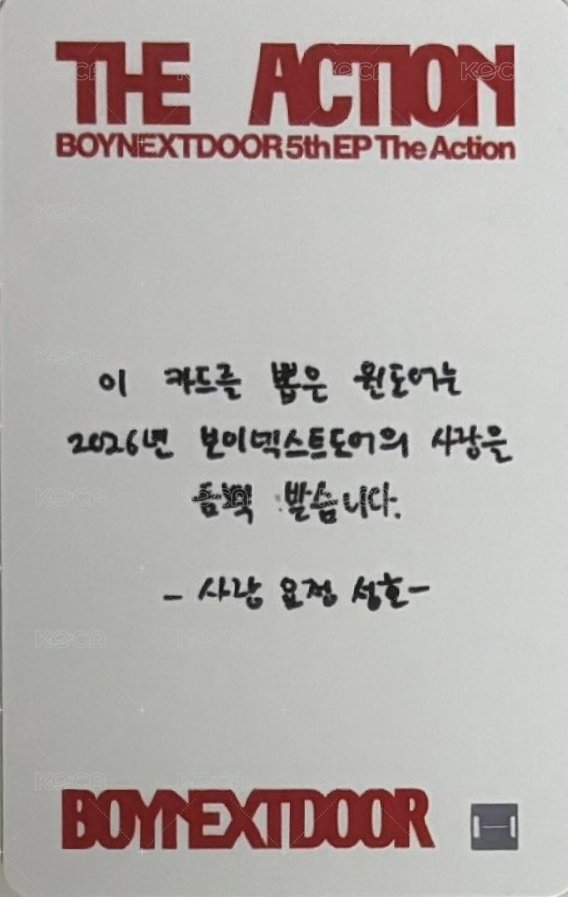 THE ACTION
BOYNEXTDOOR 5th EP The Action
이 카드를 뽑은 원도어는
2026년 보이넥스트도어의 사랑을
듬뿍 받습니다.
- 사랑 요정 성호 -
BOYNEXTDOOR
KOCA